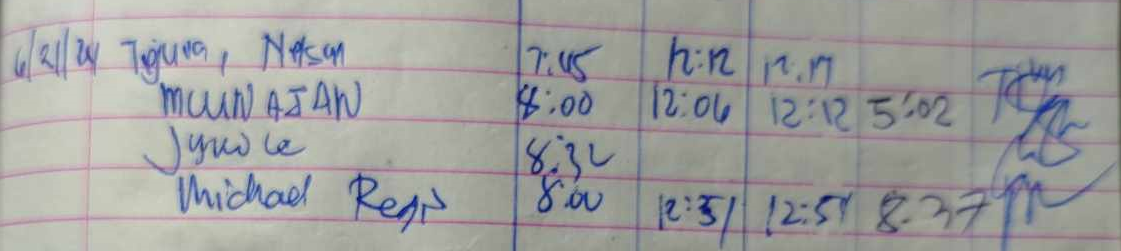 6/21/24 Tejura, Nelson 7:45 12:12 12:17
MCUNAJAN 8:00 12:06 12:12 5:02
8:32
Michael Regis 8:00 12:51 12:51 8:37